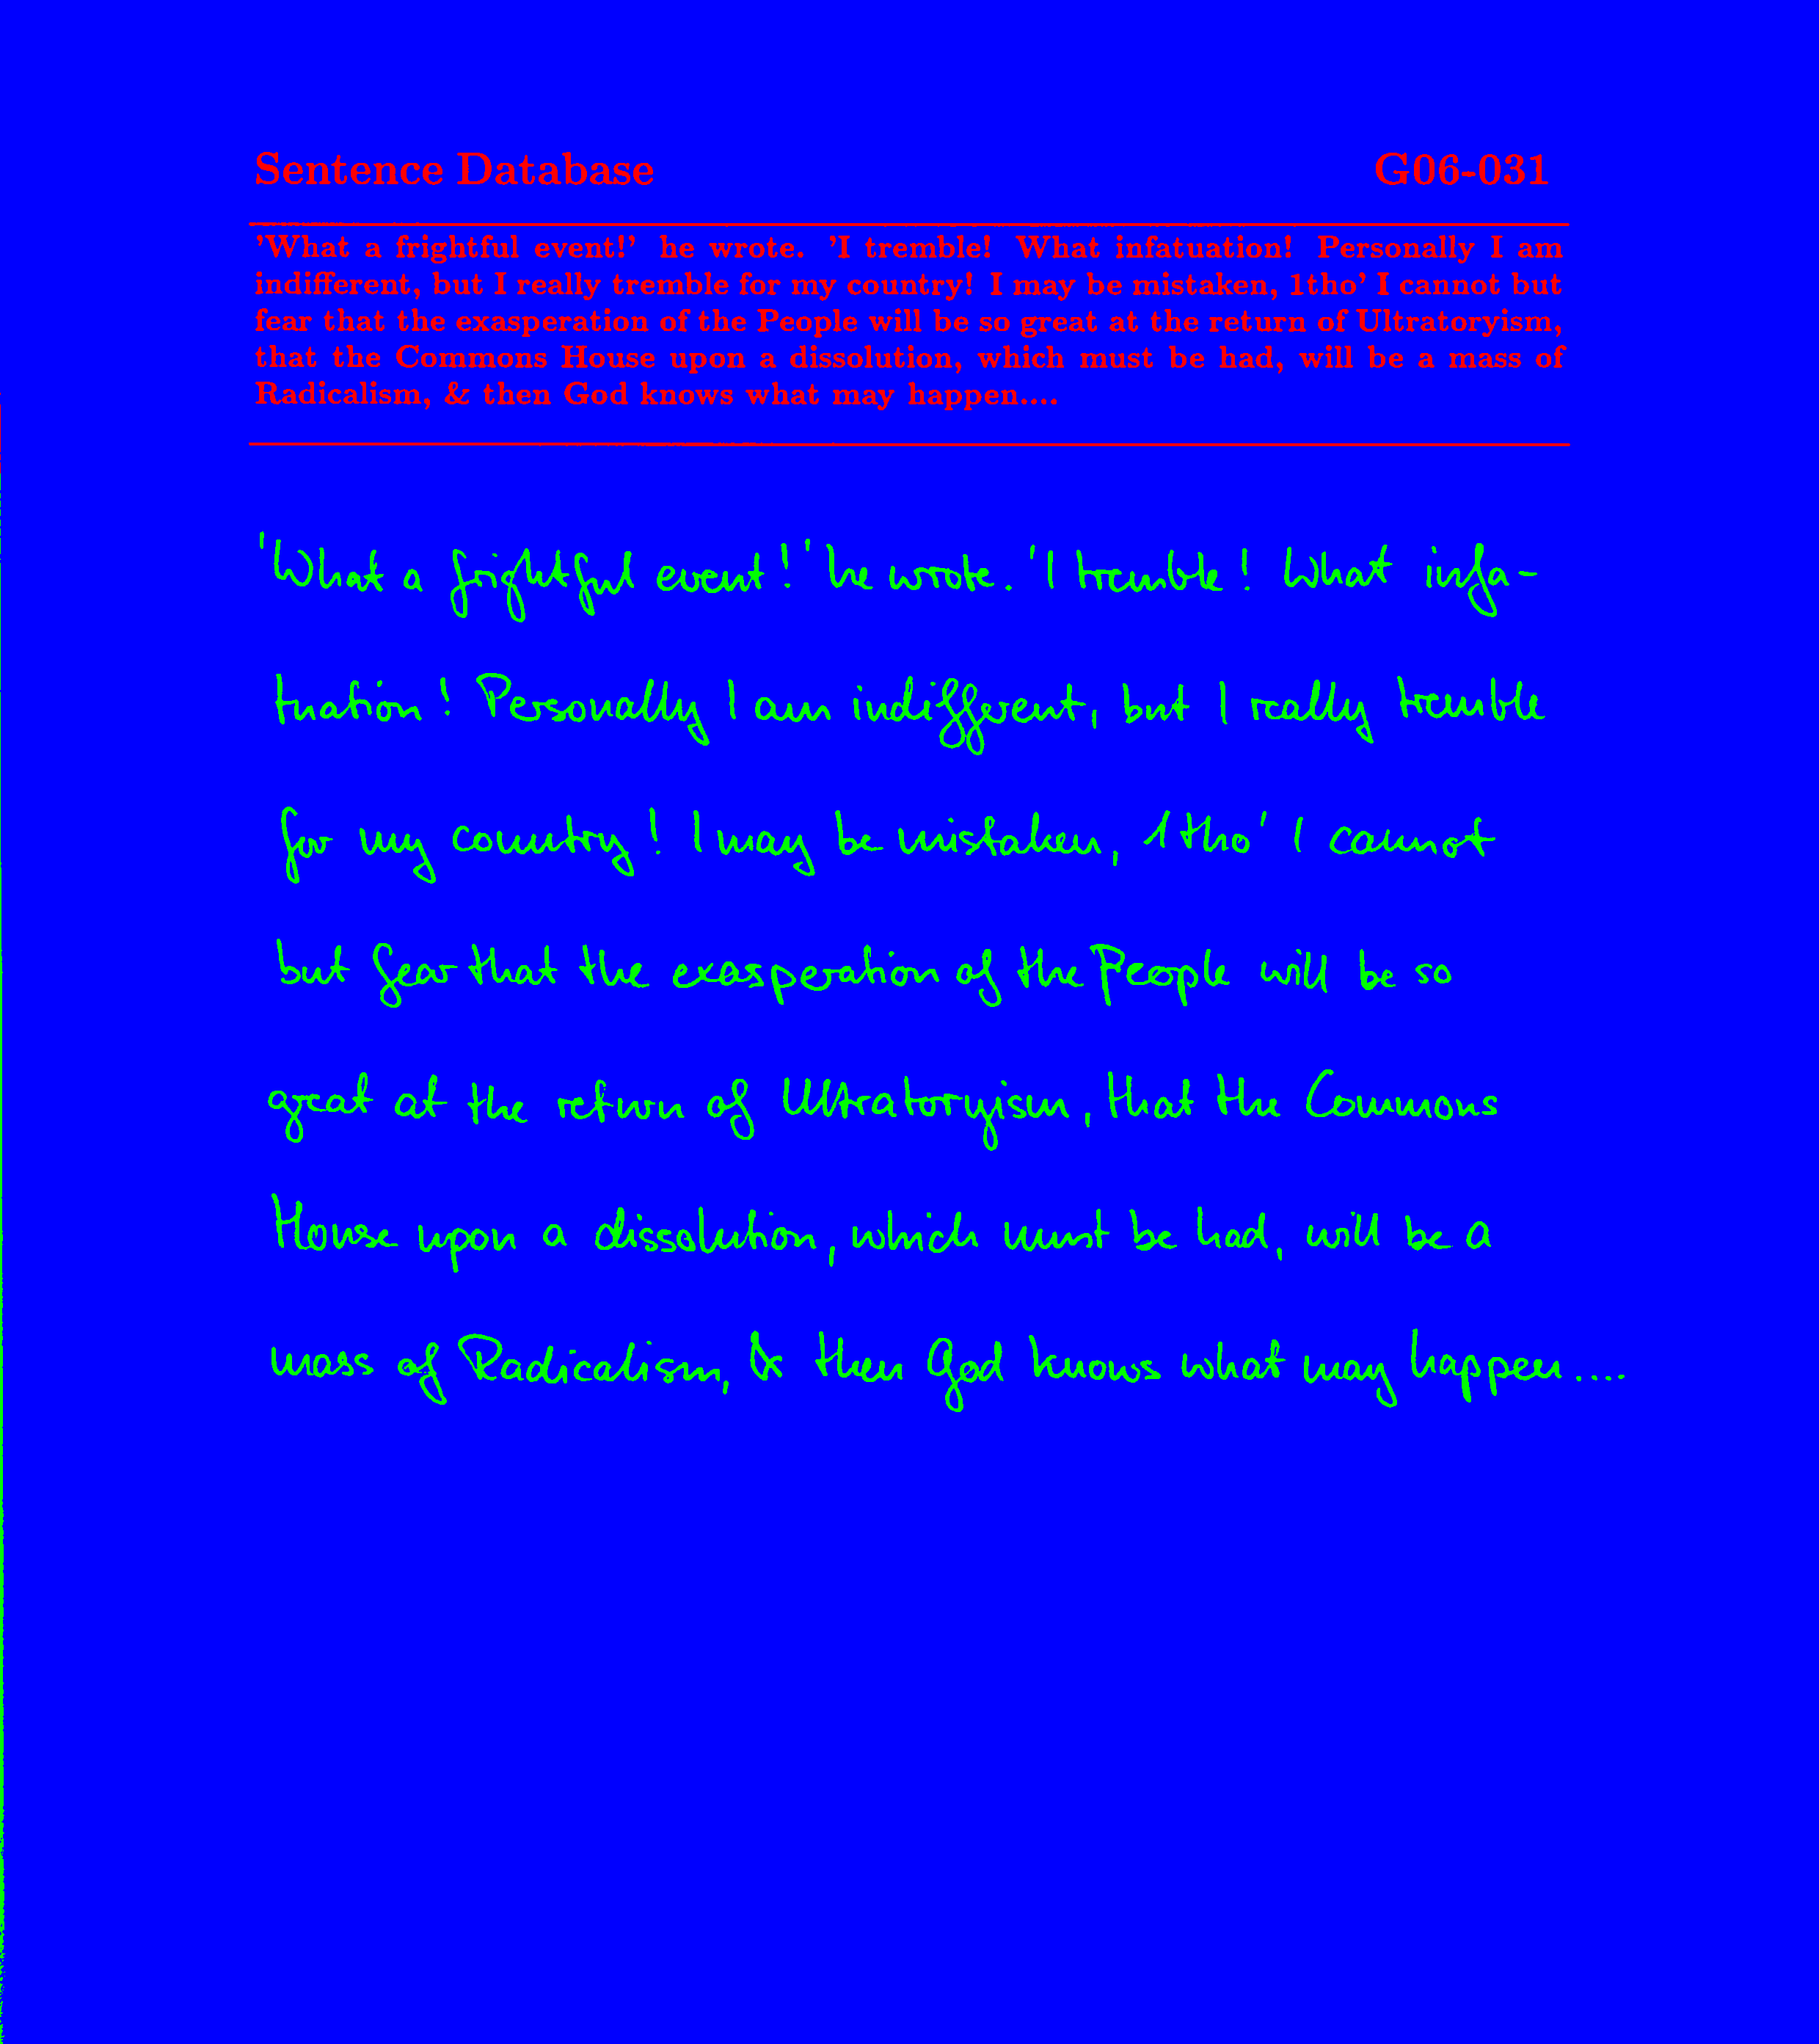 Sentence Database G06-031
'What a frightful event!' he wrote. 'I tremble! What infatuation! Personally I am
indifferent, but I really tremble for my country! I may be mistaken, 1tho' I cannot but
fear that the exasperation of the People will be so great at the return of Ultratoryism,
that the Commons House upon a dissolution, which must be had, will be a mass of
Radicalism, & then God knows what may happen....
'What a frightful event!' he wrote. 'I tremble! What infa-
tuation! Personally I am indifferent, but I really tremble
for my country! I may be mistaken, 1tho' I cannot
but fear that the exasperation of the People will be so
great at the return of Ultratoryism, that the Commons
House upon a dissolution, which must be had, will be a
mass of Radicalism, & then God knows what may happen....